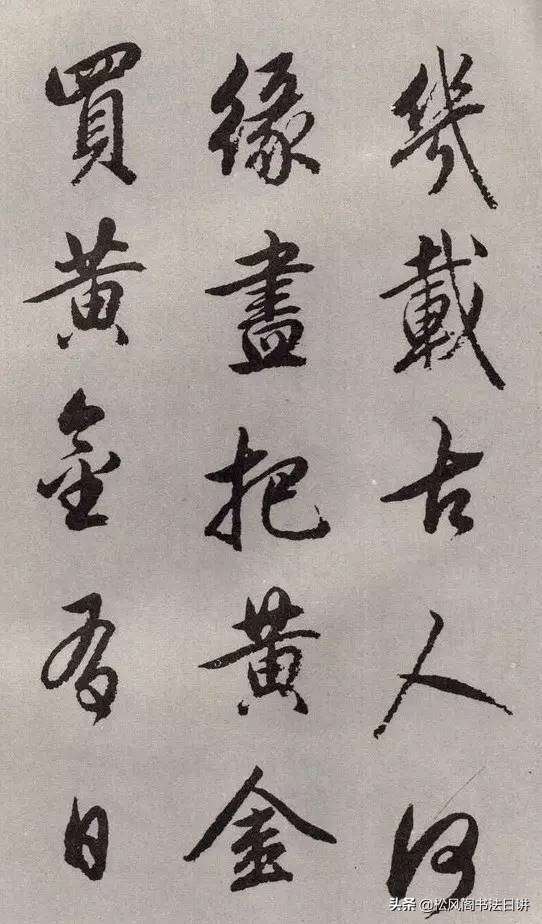 幾載古人何
緣盡把黃金
買黃金有日
头条 @松风阁书法日讲